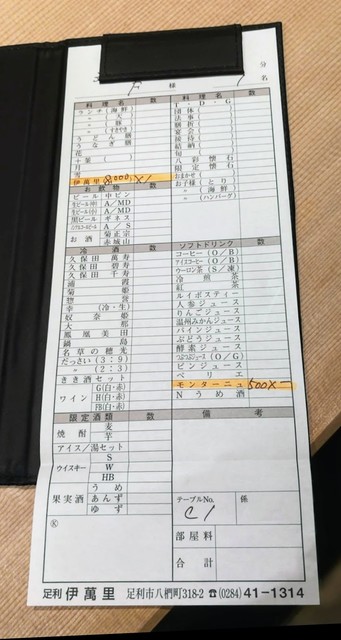 様
分
名
料理名 数
ランチ(海鮮)
〃 天
〃 豚
〃 (すきやき)
うどん膳
うなぎ膳
花
十菜(
月
雪
伊萬里 8,000 ×1
お飲物 数
ビール 中ビン
生ビール(中) A/MD
生ビール(小) A/MD
黒ビール ギネス
ノンアルコールビール A/S
お酒 菊正宗
赤城山
冷酒 数
久保田 萬寿
久保田 碧寿
久保田 千寿
浦霞
菊姫
惣誉
幸(冷・生)
奴奈姫
大那
鳳凰美田
鍋島
名草の穂光
だっさい(3:9)
〃 (2:3)
きき酒セット
ワイン G(白・赤)
H(白・赤)
FB(白・赤)
限定酒類 数
焼酎 麦
芋
アイス/湯セット
ウイスキー S
W
HB
果実酒 うめ
あんず
ゆず
Ⓚ
料理名 数
T・D・G
団体(
法事(
膳折(
宴会(
接待(
結納(
旬(
八彩懐石
限定懐石
おまかせ
お子様(とり)
〃 (海鮮)
〃 (ハンバーグ)
ソフトドリンク 数
コーヒー(O/B)
アイスコーヒー(O/B)
ウーロン茶(S/凍)
冷煎茶
紅茶
ルイボスティー
人参ジュース
りんごジュース
温州みかんジュース
パインジュース
ぶどうジュース
酵素ジュース
つぶつぶジュース(O/G)
ビンジュース
ペリエ
モンターニュ 500×
Nうめ酒
備考
テーブルNo. 係
C1
部屋料
合計
足利 伊萬里 足利市八椚町318-2 ☎(0284)41-1314